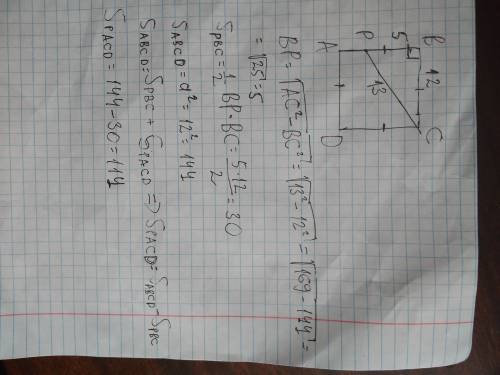 A P 5 B
13 12
D C
BP = √AC² - BC² = √13² - 12² = √169 - 144 =
= √25 = 5
S_PBC = 1/2 BP · BC = 5 · 12 / 2 = 30
S_ABCD = a² = 12² = 144
S_ABCD = S_PBC + S_PACD => S_PACD = S_ABCD - S_PBC
S_PACD = 144 - 30 = 114